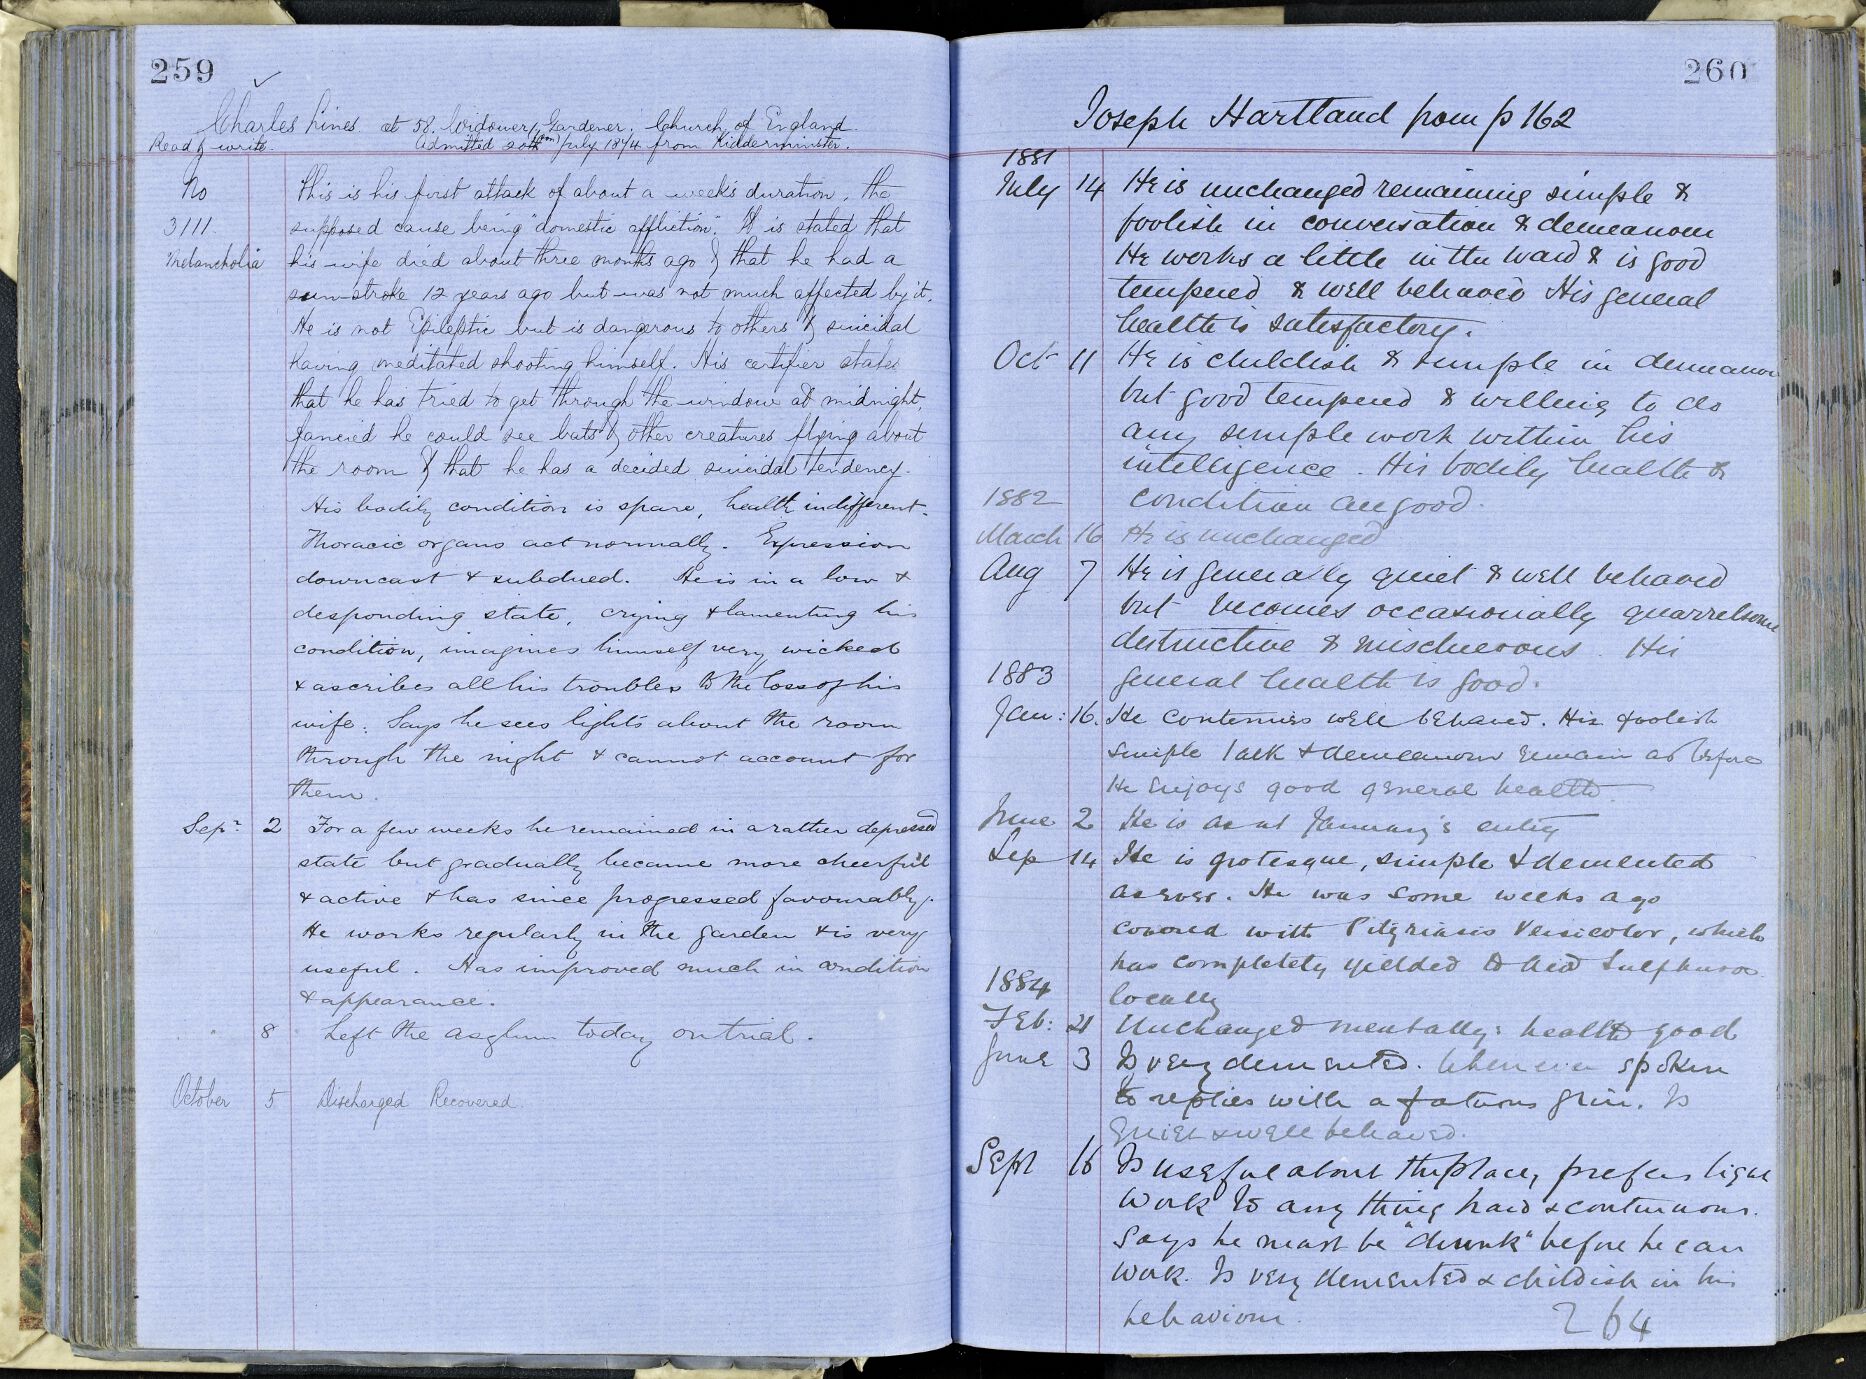 259
Charles Lines æt 58. Widower, Gardener. Church of England.
Read & write. Admitted 20th July 1874 from Kidderminster.
No
3111.
Melancholia
This is his first attack of about a week's duration, the
supposed cause being "domestic affliction". It is stated that
his wife died about three months ago & that he had a
sun-stroke 12 years ago but was not much affected by it.
He is not Epileptic but is dangerous to others & suicidal
having meditated shooting himself. His certifier states
that he has tried to get through the window at midnight,
fancied he could see bats & other creatures flying about
the room & that he has a decided suicidal tendency.
His bodily condition is spare, health indifferent.
Thoracic organs act normally. Expression
downcast & subdued. He is in a low &
desponding state, crying & lamenting his
condition, imagines himself very wicked
& ascribes all his troubles to the loss of his
wife. Says he sees lights about the room
through the night & cannot account for
them.
Sepr 2 For a few weeks he remained in a rather depressed
state but gradually became more cheerful
& active & has since progressed favourably.
He works regularly in the garden & is very
useful. Has improved much in condition
& appearance.
8 Left the asylum today on trial.
October 5 Discharged Recovered
260
Joseph Hartland from p 162
1881
July 14 He is unchanged remaining simple &
foolish in conversation & demeanour
He works a little in the ward & is good
tempered & well behaved His general
health is satisfactory.
Oct 11 He is childish & simple in demeanour
but good tempered & willing to do
any simple work within his
intelligence. His bodily health &
condition are good.
1882
March 16 He is unchanged
Aug 7 He is generally quiet & well behaved
but becomes occasionally quarrelsome
destructive & mischievous. His
general health is good.
1883
Jan: 16. He continues well behaved. His foolish
simple talk & demeanour remain as before
He enjoys good general health.
June 2 He is as at January's entry
Sep 14 He is grotesque, simple & demented
as ever. He was some weeks ago
covered with Pityriasis Versicolor, which
has completely yielded to Acid Sulphuros
locally
1884
Feb: 21 Unchanged mentally: health good
June 3 Is very demented. Whenever spoken
to replies with a fatuous grin. Is
quiet & well behaved.
Sept 16 Is useful about the place, prefers light
work to any thing hard & continuous.
Says he must be "drunk" before he can
work. Is very demented & childish in his
behaviour.
264